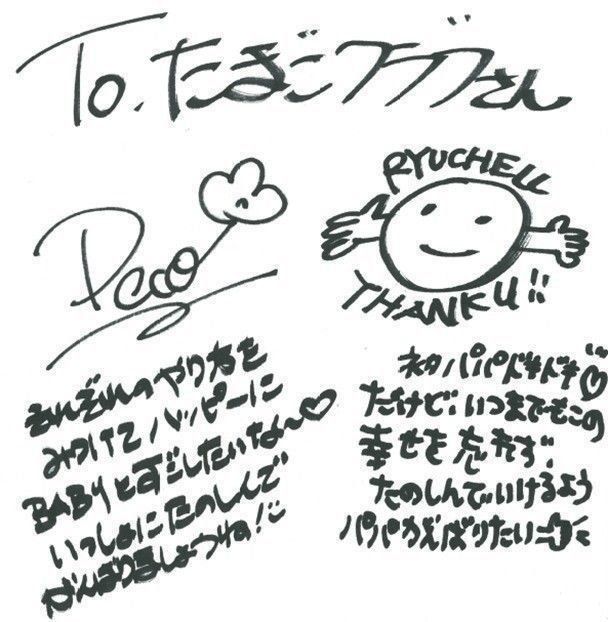 To. たまごクラブさん
Peco
RYUCHELL
THANKU!!
それぞれのやり方を
みつけてハッピーに
BABYとすごしたいな〜♡
いっしょにたのしんで
がんばりましょうね!
パパドキドキ♡
だけど、いつまでもこの
幸せを忘れず、
たのしんでいけるよう
パパがんばりたい